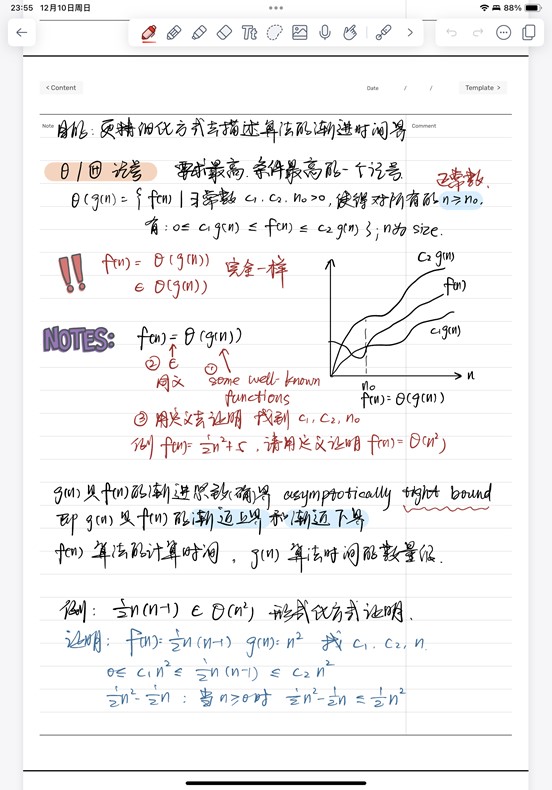 23:55 12月10日周日
88%
Content
Date / /
Template >
Note
目的：更精细化方式去描述算法的渐进时间
Comment
θ | 田 记号 要求最高.条件最高的一个记号.
正常数.
θ(g(n)) = { f(n) | ∃常数 c₁. c₂. n₀ >0, 使得对所有的 n ≥ n₀.
有: 0 ≤ c₁g(n) ≤ f(n) ≤ c₂ g(n) } ; n为 size.
!!
f(n) = θ(g(n)) 完全一样
∈ θ(g(n))
c₂ g(n)
f(n)
c₁g(n)
n
n₀
f(n) = θ(g(n))
NOTES:
f(n) = θ(g(n))
② ∈ ①
同义 some well-known
functions
③ 用定义去证明 找到 c₁, c₂, n₀
例 f(n) = ½n²+5, 请用定义证明 f(n) = θ(n²)
g(n)是f(n)的渐进 (确)界 asymptotically tight bound
即 g(n) 是 f(n) 的渐近上界 和渐近下界
f(n) 算法的计算时间, g(n) 算法时间的数量级.
例: ½n(n-1) ∈ θ(n²) 形式化方式证明.
证明: f(n) = ½n(n-1) g(n) = n² 找 c₁. c₂, n.
0 ≤ c₁n² ≤ ½n(n-1) ≤ c₂n²
½n² - ½n : 当 n≥0时 ½n² - ½n ≤ ½n²